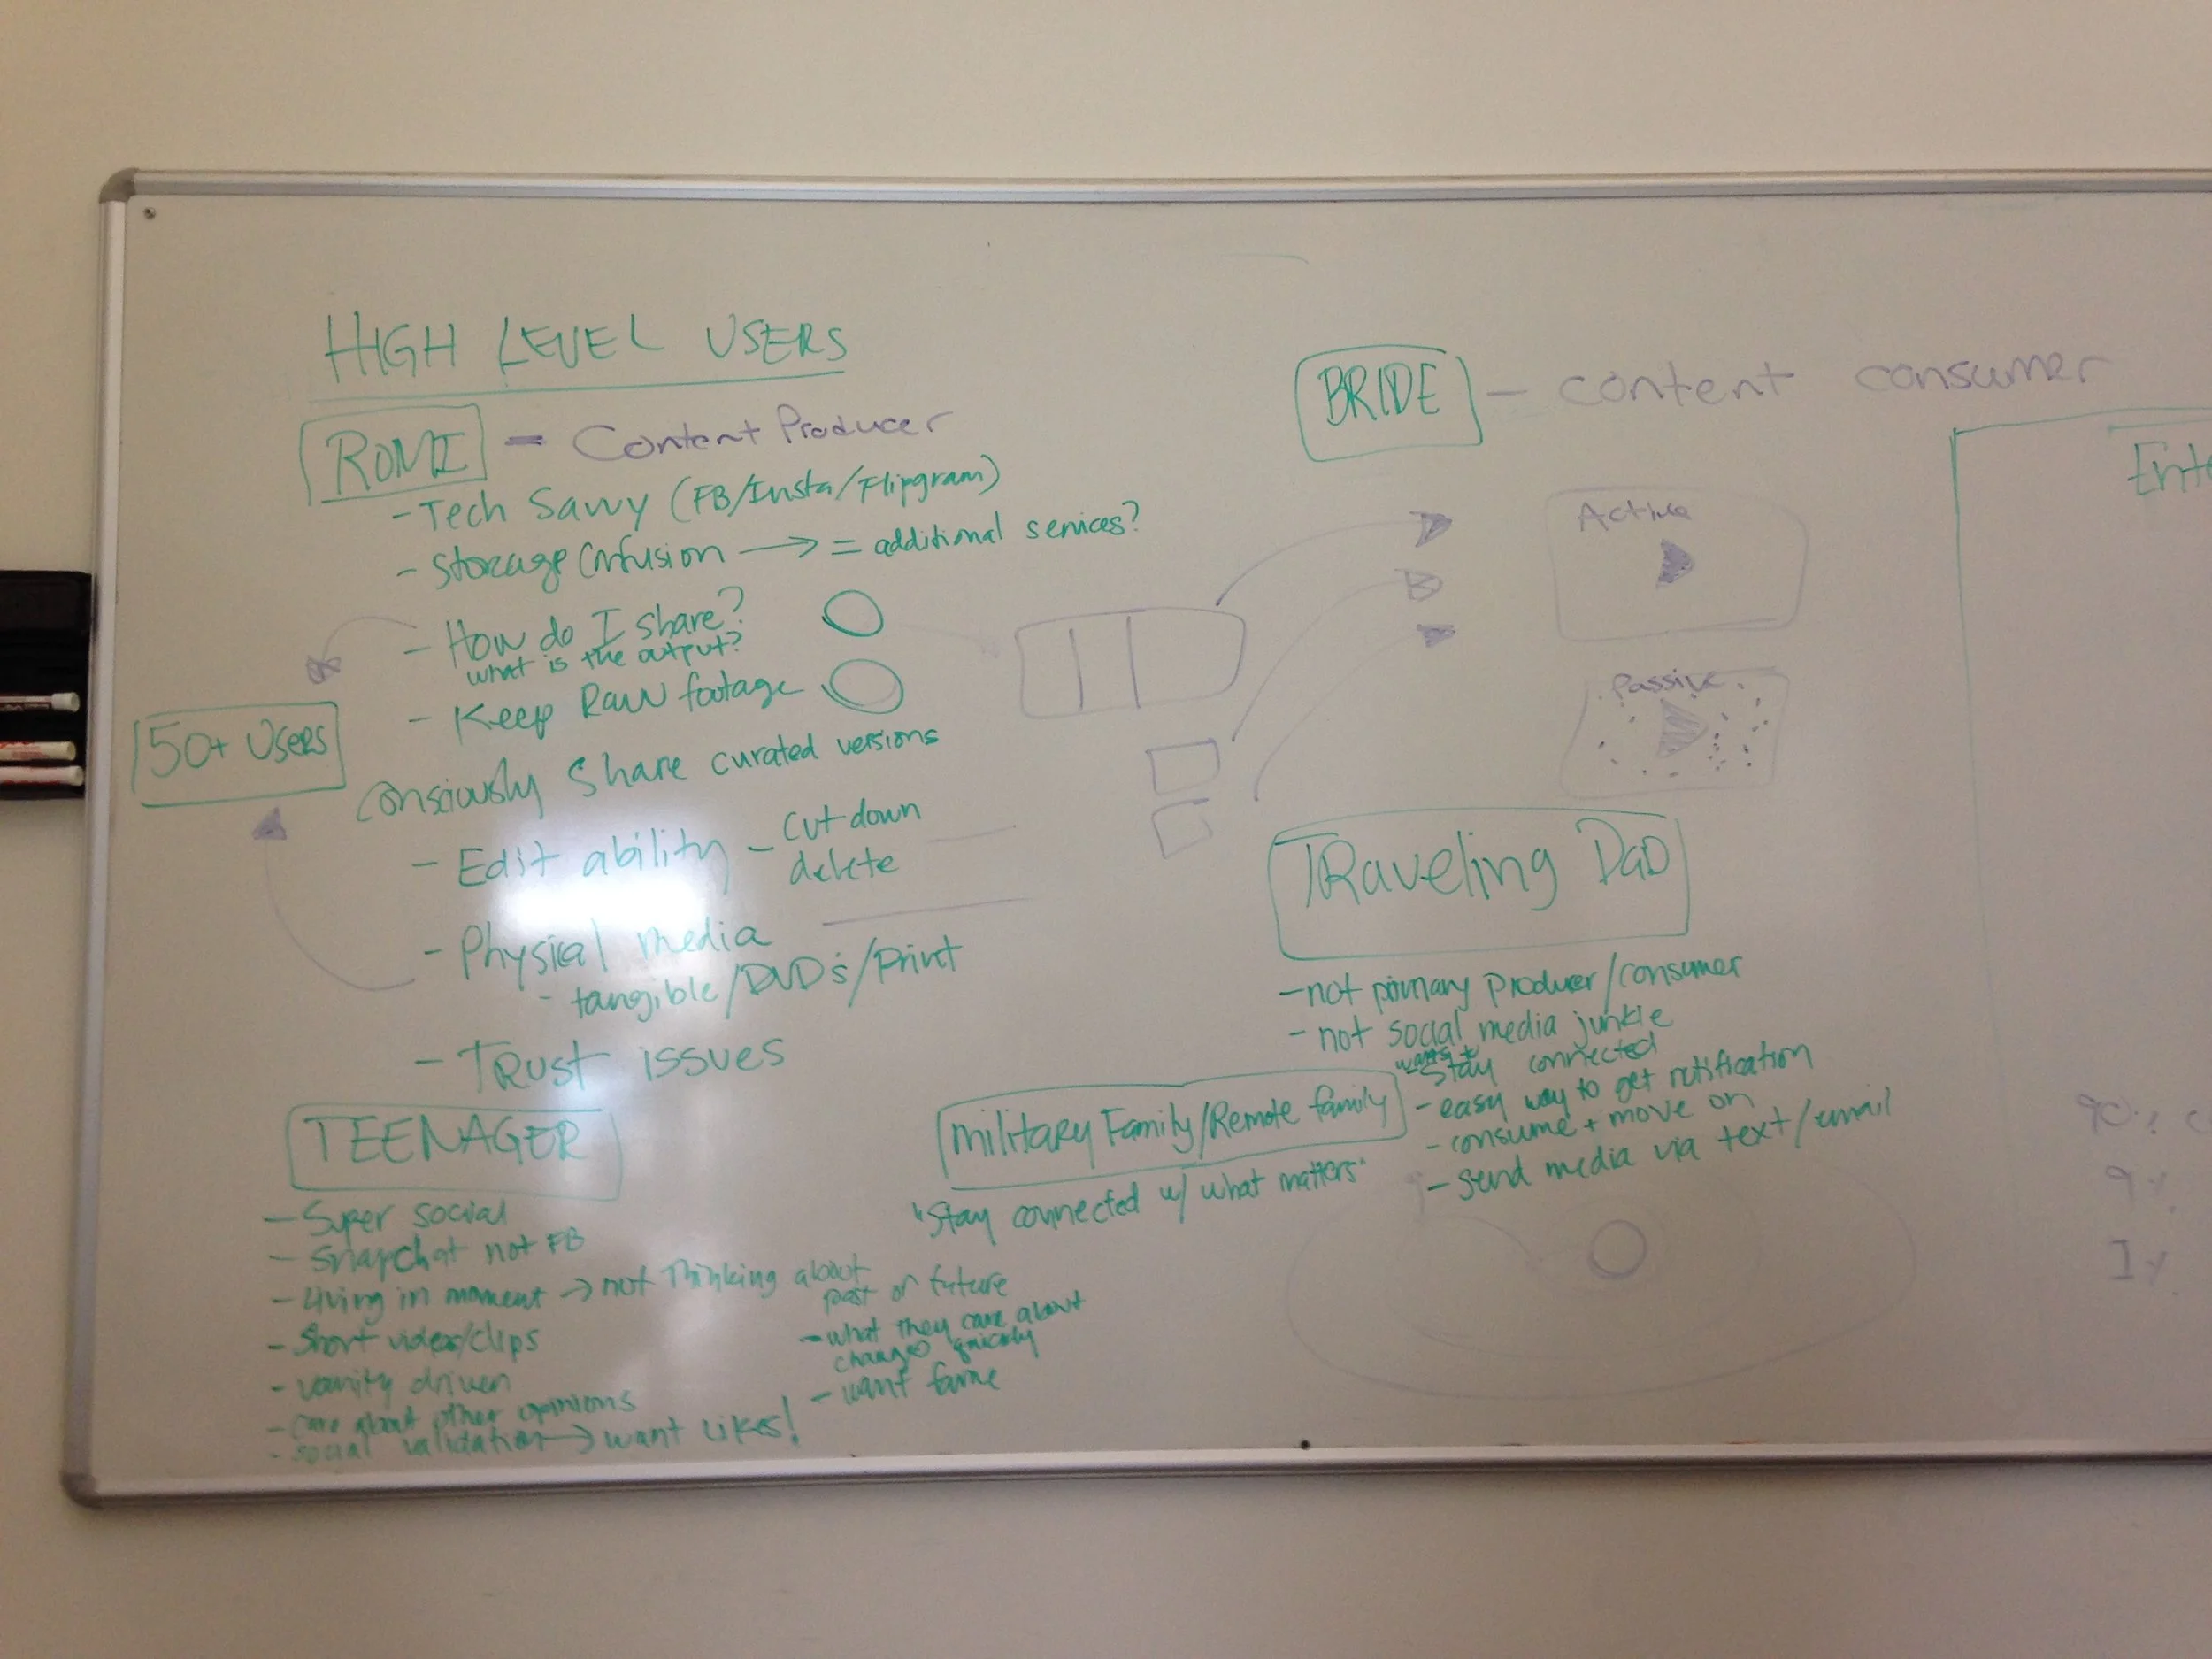 HIGH LEVEL USERS
ROMI - Content Producer
- Tech Savvy (FB/Insta/Flipgram)
- Storage Confusion → = additional services?
- How do I share?
what is the output?
- Keep Raw footage
50+ Users
Consciously Share curated versions
- Edit ability - cut down
delete
- Physical media
- tangible/DVD's/Print
- Trust issues
TEENAGER
- Super social
- Snapchat not FB
- Living in moment → not thinking about
past or future
- Short video/clips
- vanity driven
- care about other opinions
- social validation → want likes!
- what they care about
changes quickly
- want fame
military Family/Remote family
"Stay connected w/ what matters"
BRIDE - content consumer
Active
Passive
TRaveling DaD
- not primary producer/consumer
- not social media junkie
wants to
- Stay connected
- easy way to get notification
- consume + move on
- send media via text/email